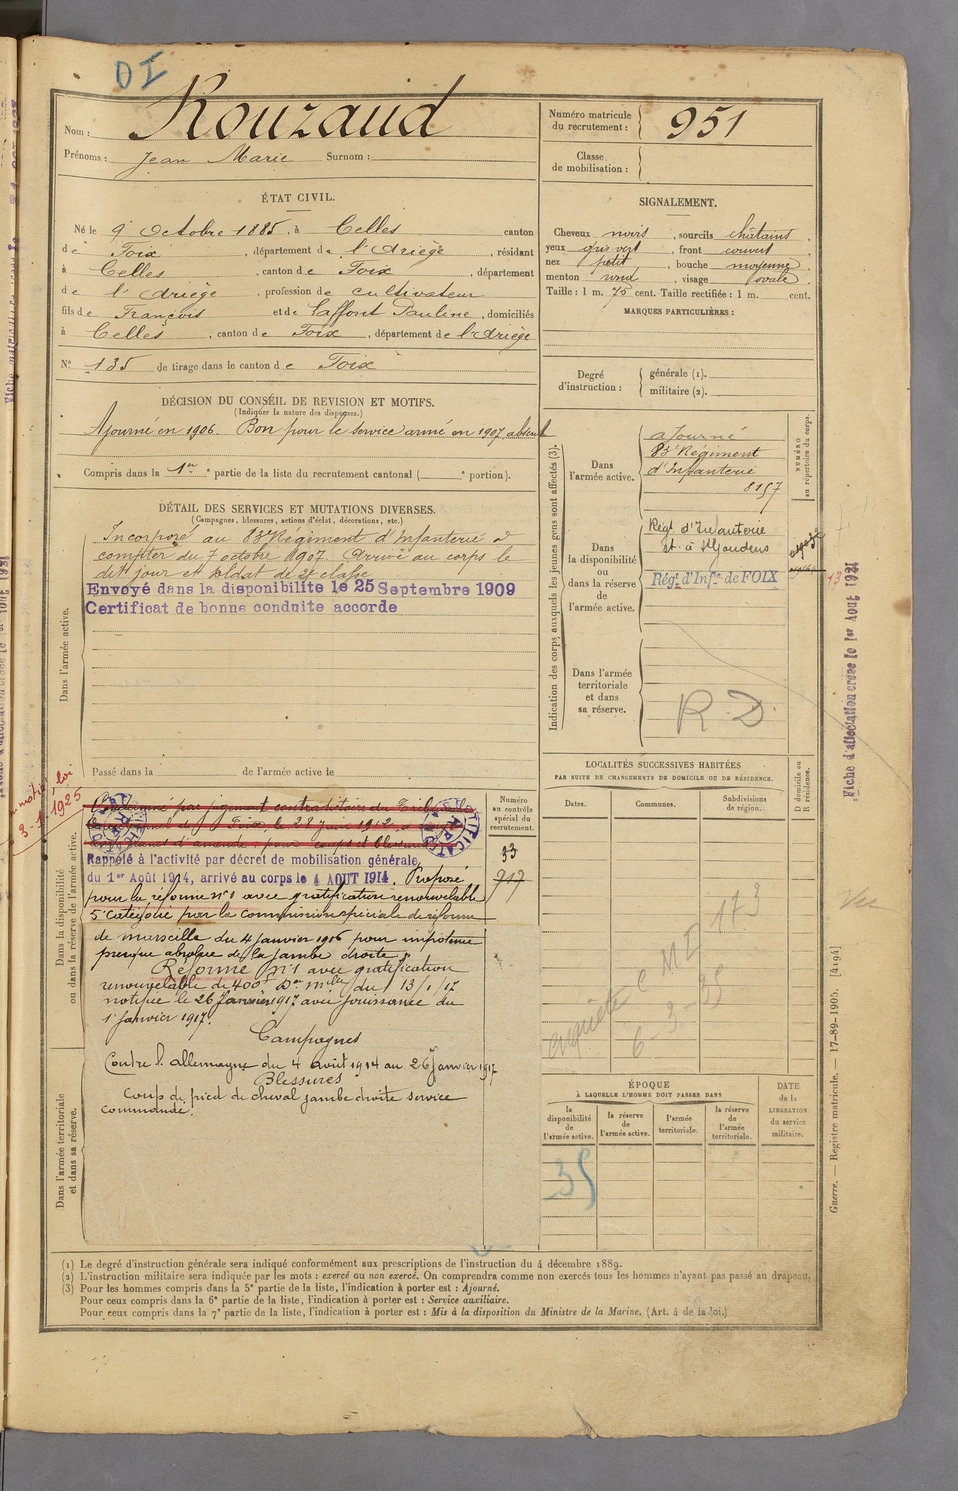 DI
Nom : Rouzaud
Prénoms : Jean Marie Surnom :
Numéro matricule
du recrutement : 951
Classe
de mobilisation :
ÉTAT CIVIL.
Né le 9 Octobre 1885, à Celles canton
de Foix, département de l'Ariège, résidant
à Celles, canton de Foix, département
de l'Ariège, profession de cultivateur
fils de François et de Laffont Pauline, domiciliés
à Celles, canton de Foix, département de l'Ariège
N° 135 de tirage dans le canton de Foix
SIGNALEMENT.
Cheveux noirs, sourcils châtains,
yeux gris vert, front couvert,
nez petit, bouche moyenne,
menton rond, visage ovale.
Taille : 1 m. 75 cent. Taille rectifiée : 1 m. cent.
MARQUES PARTICULIÈRES :
Degré
d'instruction :
générale (1).
militaire (2).
DÉCISION DU CONSEIL DE REVISION ET MOTIFS.
(Indiquer la nature des dispenses.)
Ajourné en 1906. Bon pour le service armé en 1907 absent
Compris dans la 1re partie de la liste du recrutement cantonal ( e portion).
DÉTAIL DES SERVICES ET MUTATIONS DIVERSES.
(Campagnes, blessures, actions d'éclat, décorations, etc.)
Dans l'armée active.
Incorporé au 83e Régiment d'Infanterie à
compter du 7 octobre 1907. Arrivé au corps le
dit jour et soldat de 2e classe
Envoyé dans la disponibilité le 25 Septembre 1909
Certificat de bonne conduite accordé
Passé dans la de l'armée active le
Indication des corps auxquels les jeunes gens sont affectés (3).
NUMÉRO
au répertoire du corps.
Dans
l'armée active.
ajourné
83e Régiment
d'Infanterie
8157
Dans
la disponibilité
ou
dans la réserve
de
l'armée active.
Régt d'Infanterie
St à St Gaudens
Régt. d'Infie de FOIX
Dans l'armée
territoriale
et dans
sa réserve.
R D.
Fiche d'affectation créée le 1er Aout 1921
LOCALITÉS SUCCESSIVES HABITÉES
PAR SUITE DE CHANGEMENTS DE DOMICILE OU DE RÉSIDENCE.
Dates.
Communes.
Subdivisions
de région.
D domicile ou
R résidence.
loi
3-1-1925
Dans la disponibilité
ou dans la réserve de l'armée active.
Numéro
au contrôle
spécial du
recrutement.
33
717
Condamné par jugement contradictoire du Tribunal
de Foix, le 28 juin 1912, à
francs d'amende, pour coups et blessures
Rappelé à l'activité par décret de mobilisation générale
du 1er Août 1914, arrivé au corps le 4 AOUT 1914. Proposé
pour la réforme n°1 avec gratification renouvelable
5e catégorie par la commission spéciale de réforme
de marseille du 4 janvier 1916 pour impotence
presque absolue de la jambe droite.
Réformé n°1 avec gratification
renouvelable de 400f Don mlle du 13/1/17
notifiée le 26 Janvier 1917 avec jouissance du
1er Janvier 1917.
Campagnes
Contre l'allemagne du 4 août 1914 au 26 janvier 1917
Blessures
Coup de pied de cheval jambe droite service
commandé.
Dans l'armée territoriale
et dans sa réserve.
Vu
enquête C M I 173
6-3-35
ÉPOQUE
À LAQUELLE L'HOMME DOIT PASSER DANS
la
disponibilité
de
l'armée active.
la réserve
de
l'armée active.
l'armée
territoriale.
la réserve
de
l'armée
territoriale.
DATE
de la
LIBÉRATION
du service
militaire.
35
Guerre. — Registre matricule. — 17-89-1905. [4194]
(1) Le degré d'instruction générale sera indiqué conformément aux prescriptions de l'instruction du 4 décembre 1889.
(2) L'instruction militaire sera indiquée par les mots : exercé ou non exercé. On comprendra comme non exercés tous les hommes n'ayant pas passé au drapeau.
(3) Pour les hommes compris dans la 5e partie de la liste, l'indication à porter est : Ajourné.
Pour ceux compris dans la 6e partie de la liste, l'indication à porter est : Service auxiliaire.
Pour ceux compris dans la 7e partie de la liste, l'indication à porter est : Mis à la disposition du Ministre de la Marine. (Art. 4 de la loi.)